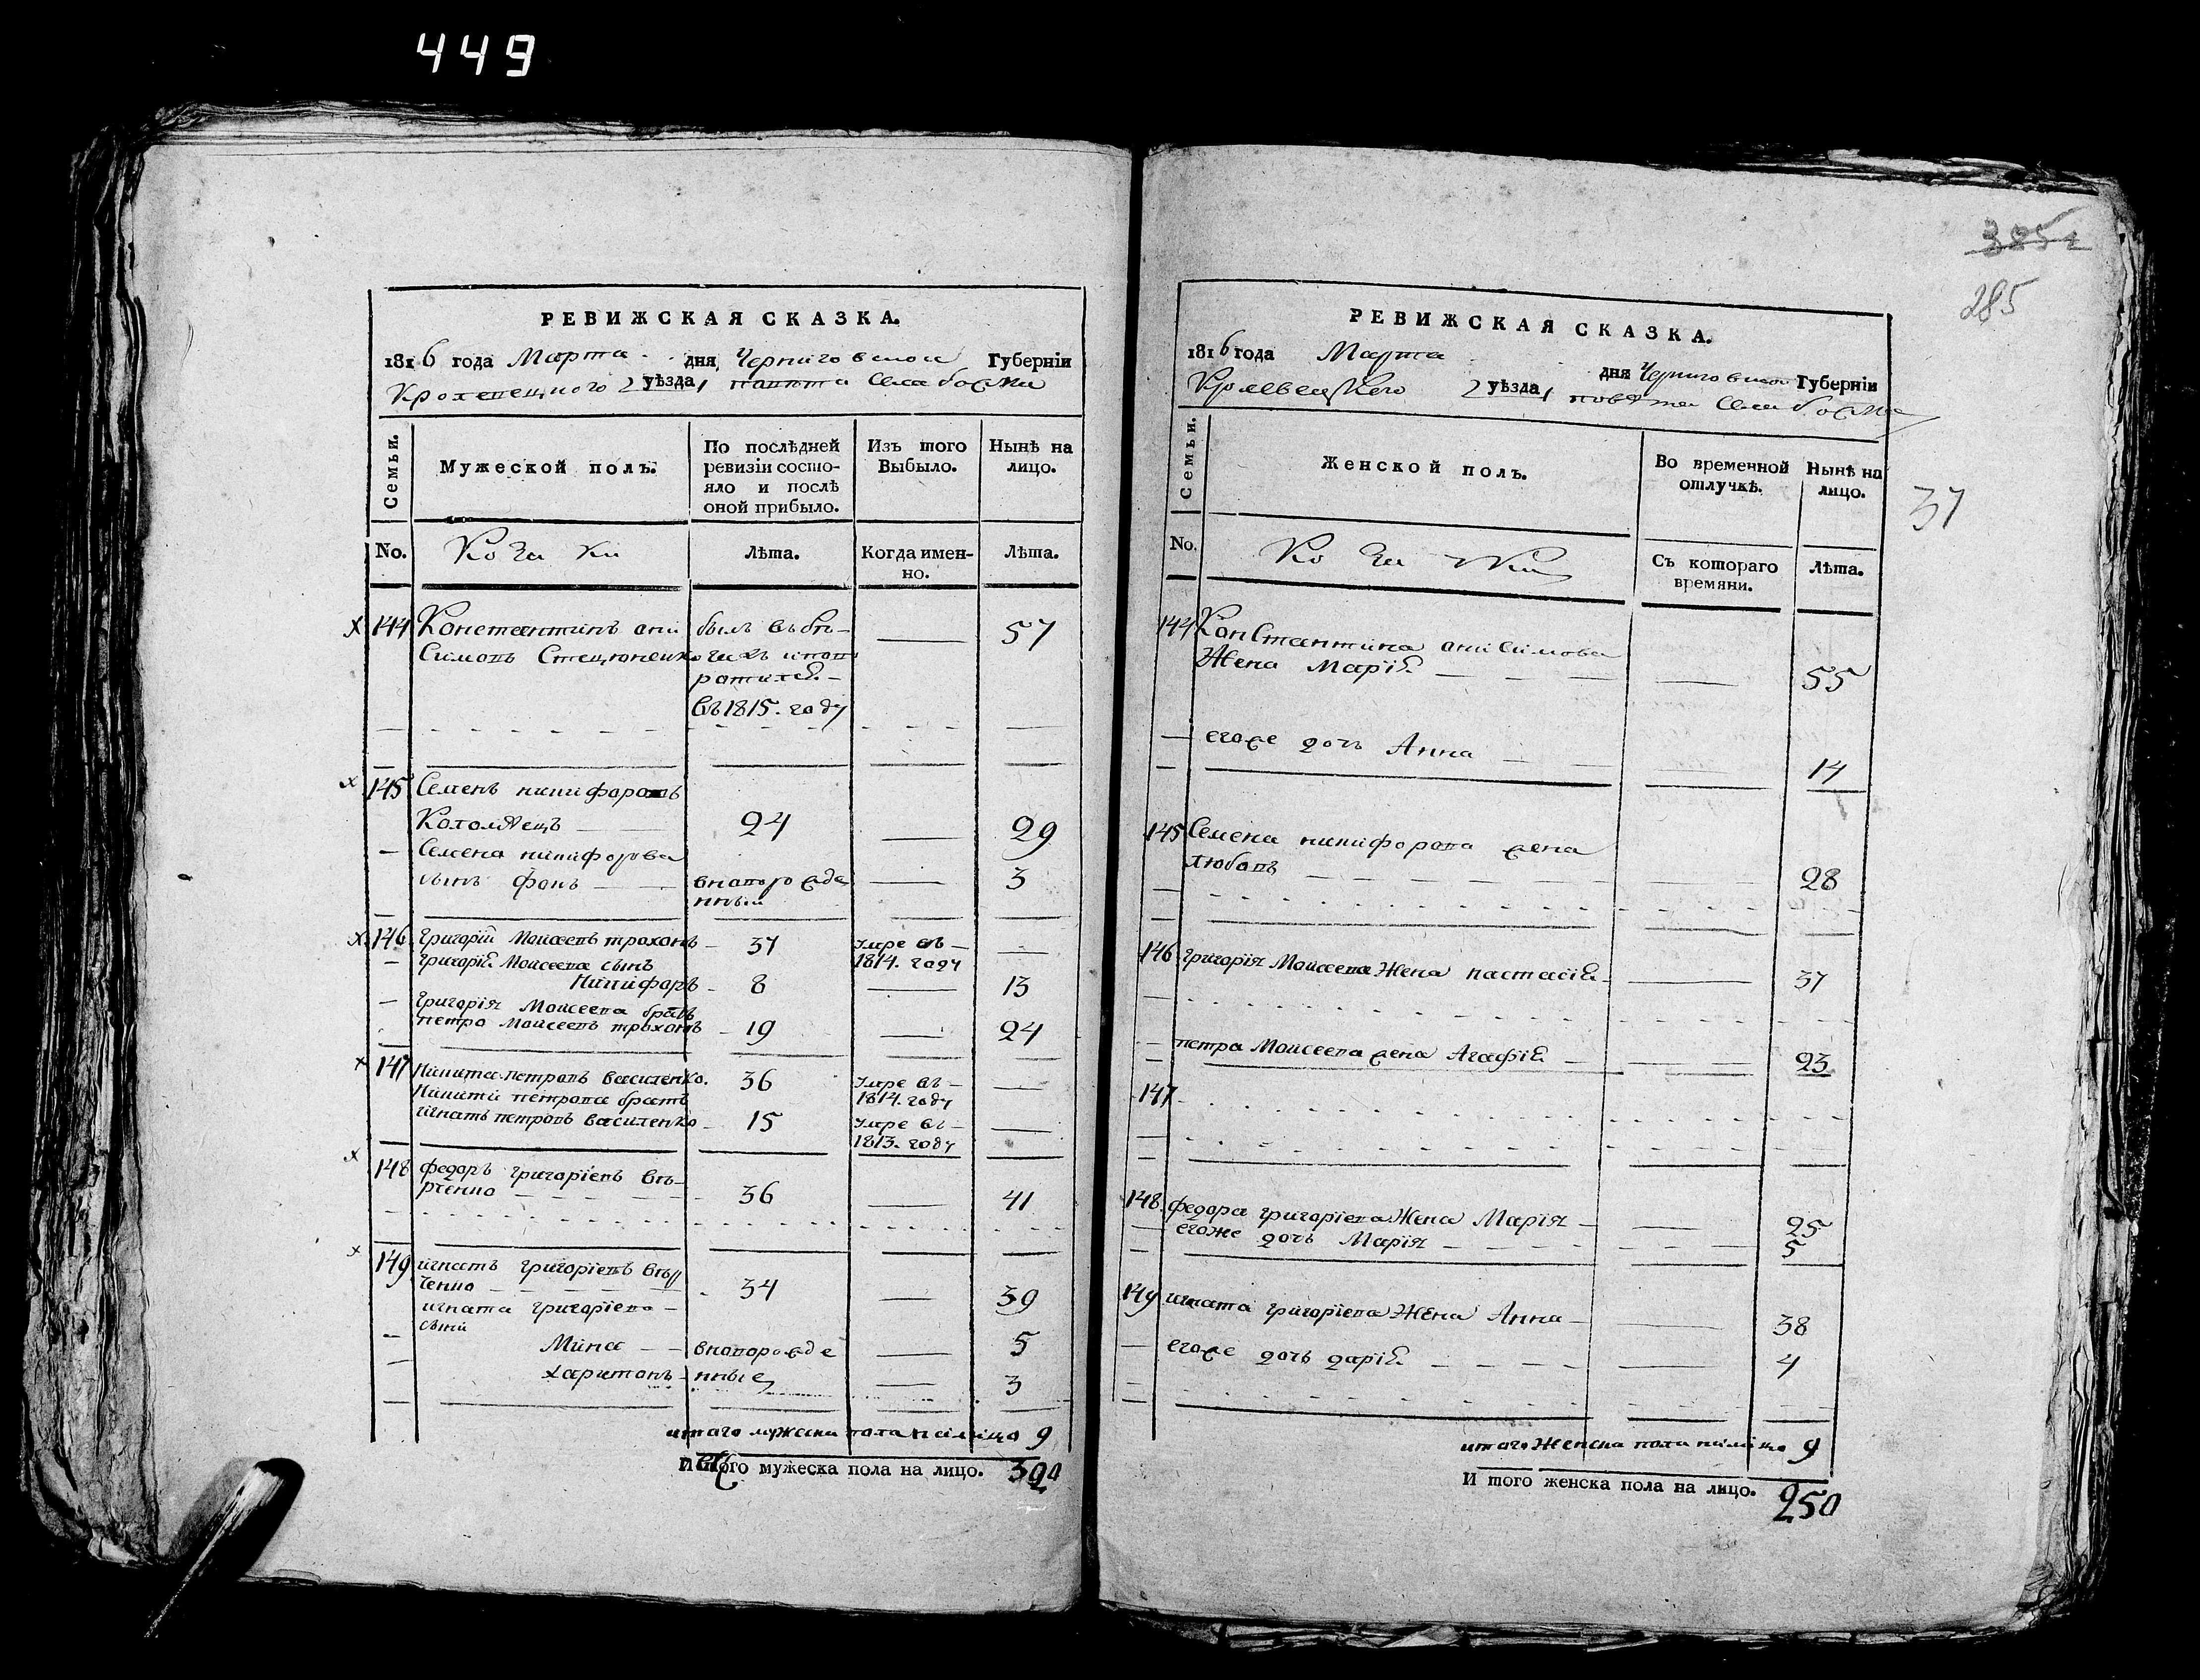 449
РЕВИЖСКАЯ СКАЗКА.
1816 года Марта дня Черниговской Губерніи
Кролевецкого уѣзда, повѣта Села
Семьи.
Мужеской полъ.
По послѣдней
ревизіи состо-
яло и послѣ
оной прибыло.
Изъ того
Выбыло.
Нынѣ на
лицо.
No.
Козаки
Лѣта.
Когда имен-
но.
Лѣта.
144 Константинъ они былъ въ бѣ- 57
симовъ Стецюненко гахъ и
въ 1815. году
145 Семенъ никифоровъ
24 29
Семена никифорова
сынъ новорожде 3
нный
146 григорій Моисеевъ трохонъ 37 умре въ
григорія Моисеева сынъ 1814. году
Никифоръ 8 13
григорія Моисеева братъ
петро Моисеевъ трохонъ 19 24
147 Никита петровъ василенко. 36 умре въ
Никиты петрова братъ 1814. году
игнатъ петровъ василенко 15 умре въ
1813. году
148 федоръ григоріевъ въ-
рченко 36 41
149 игнатъ григоріевъ въ//
ченко 34 39
игната григоріева
сыни
Мина новорожде 5
харитонъ нные 3
итого мужеска пола налицо 9
И того мужеска пола на лицо.
3854
285
РЕВИЖСКАЯ СКАЗКА.
1816 года Марта дня Черниговской Губерніи
Кролевецкого уѣзда, повѣта Села
Семьи.
Женской полъ.
Во временной
отлучкѣ.
Нынѣ на
лицо.
37
No.
Козачки
Съ котораго
времяни.
Лѣта.
144 Константина онисимова
Жена Марія 55
егоже дочь Анна 14
145 Семена никифорова жена
любовь 28
146 григорія Моисеева Жена настасія 37
петра Моисеева жена Агафія 23
147
148 федора григоріева Жена Марія 25
егоже дочь Марія 5
149 игната григоріева Жена Анна 38
егоже дочь дарія 4
итого Женска пола налицо 9
И того женска пола на лицо. 250